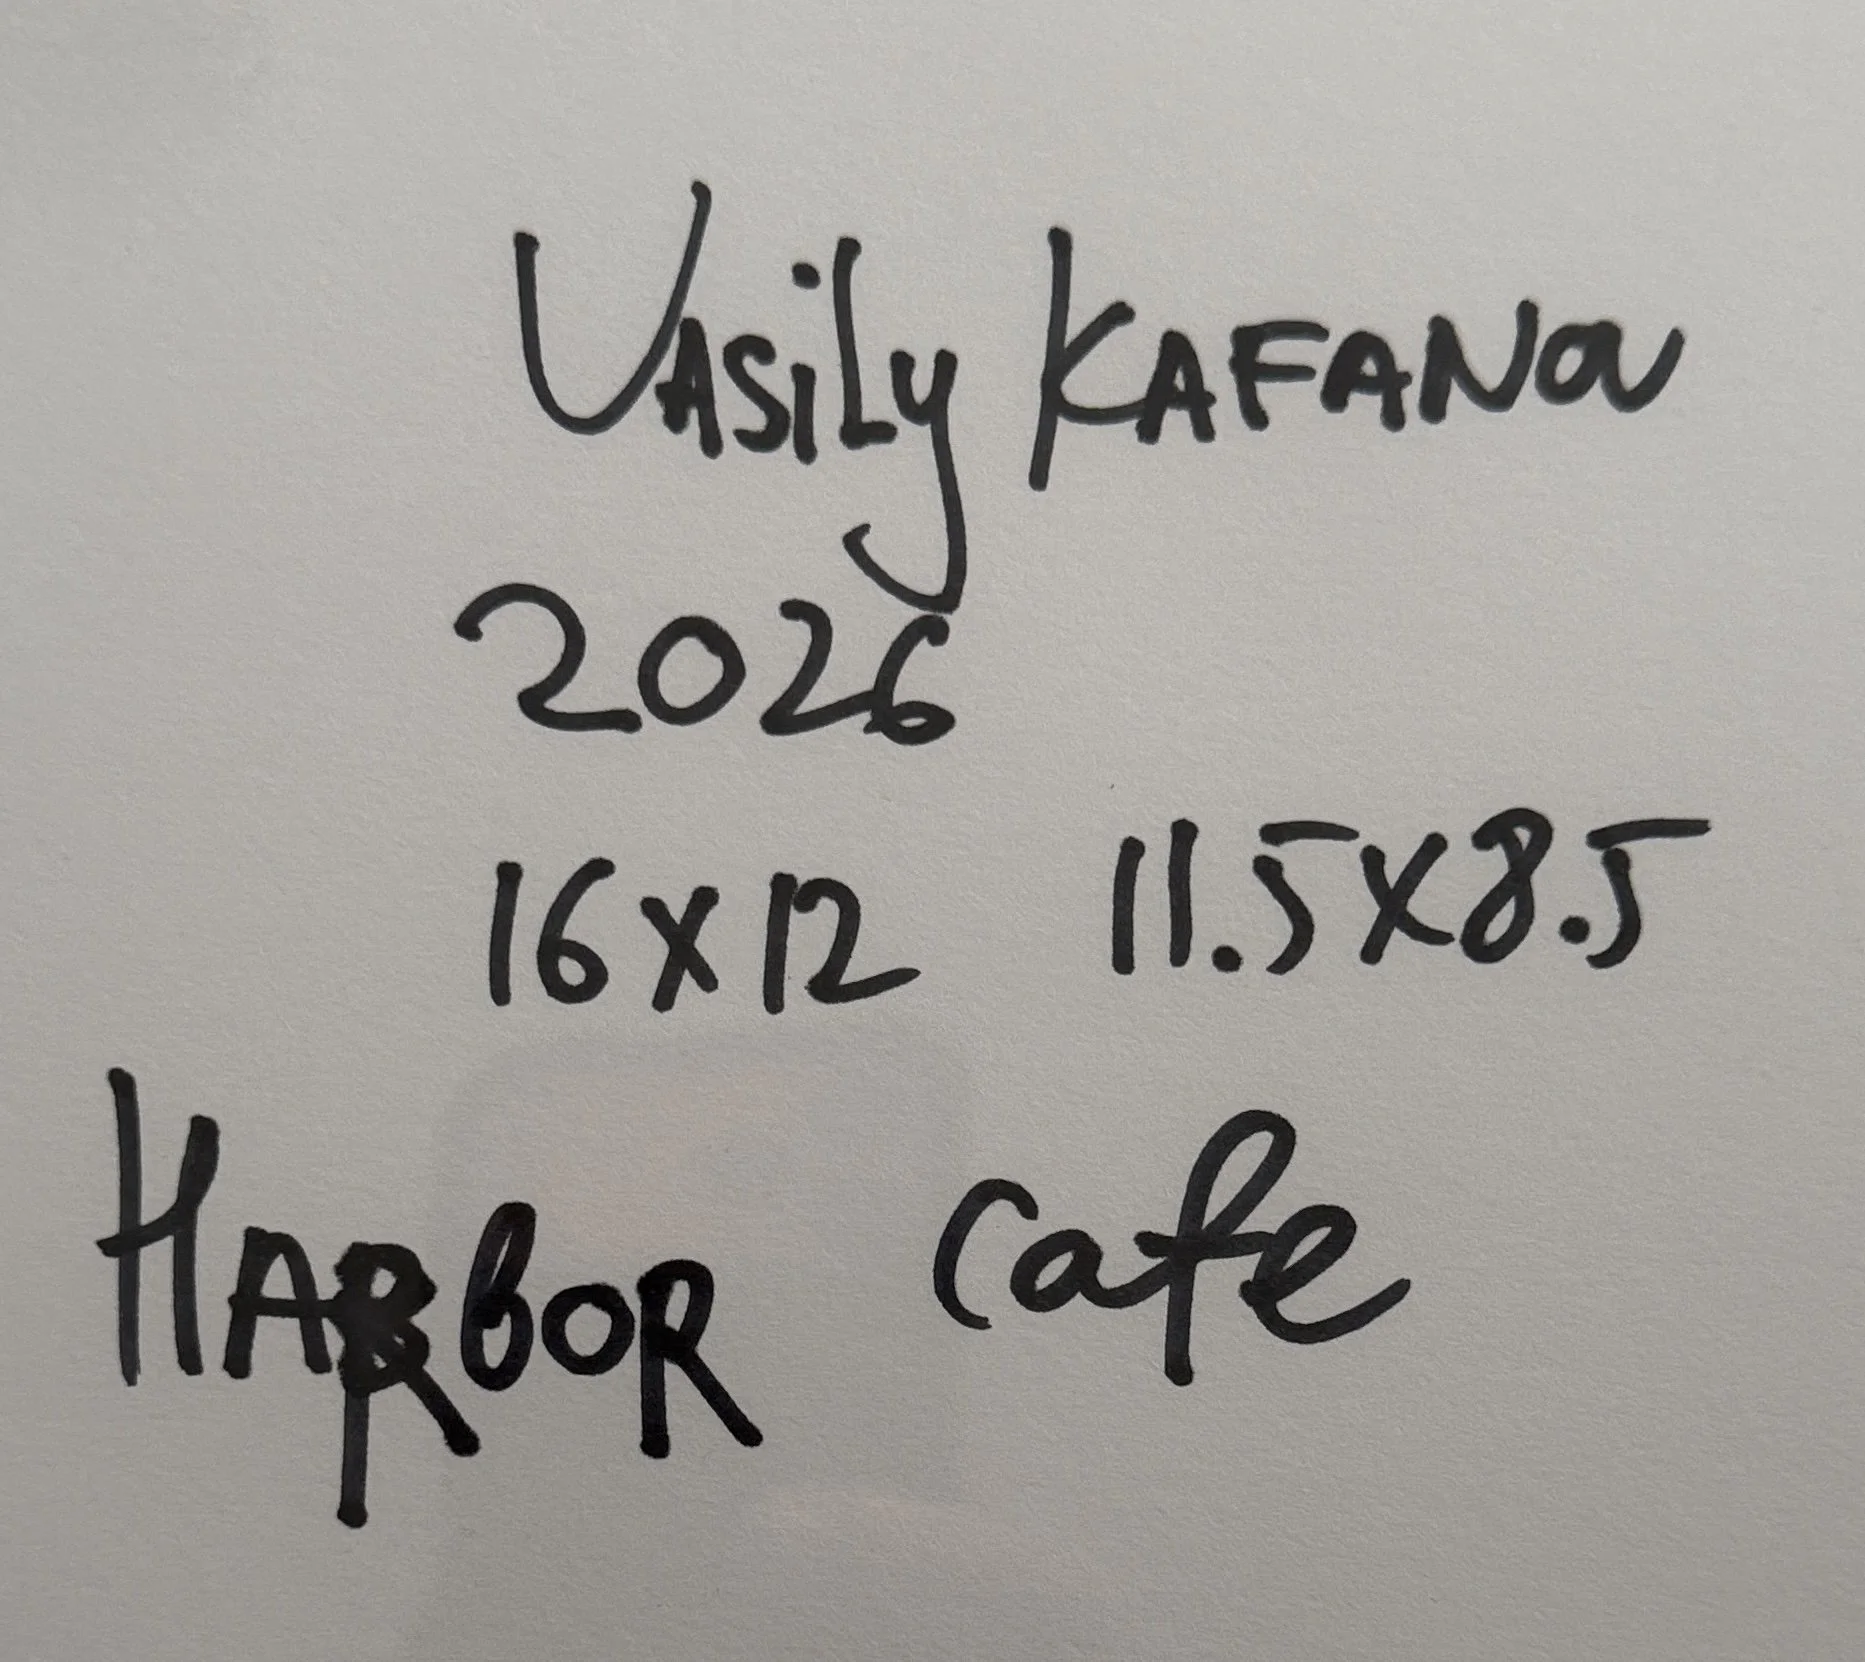 Vasily KAFANOV
2026
16x12 11.5x8.5
HARBOR cafe